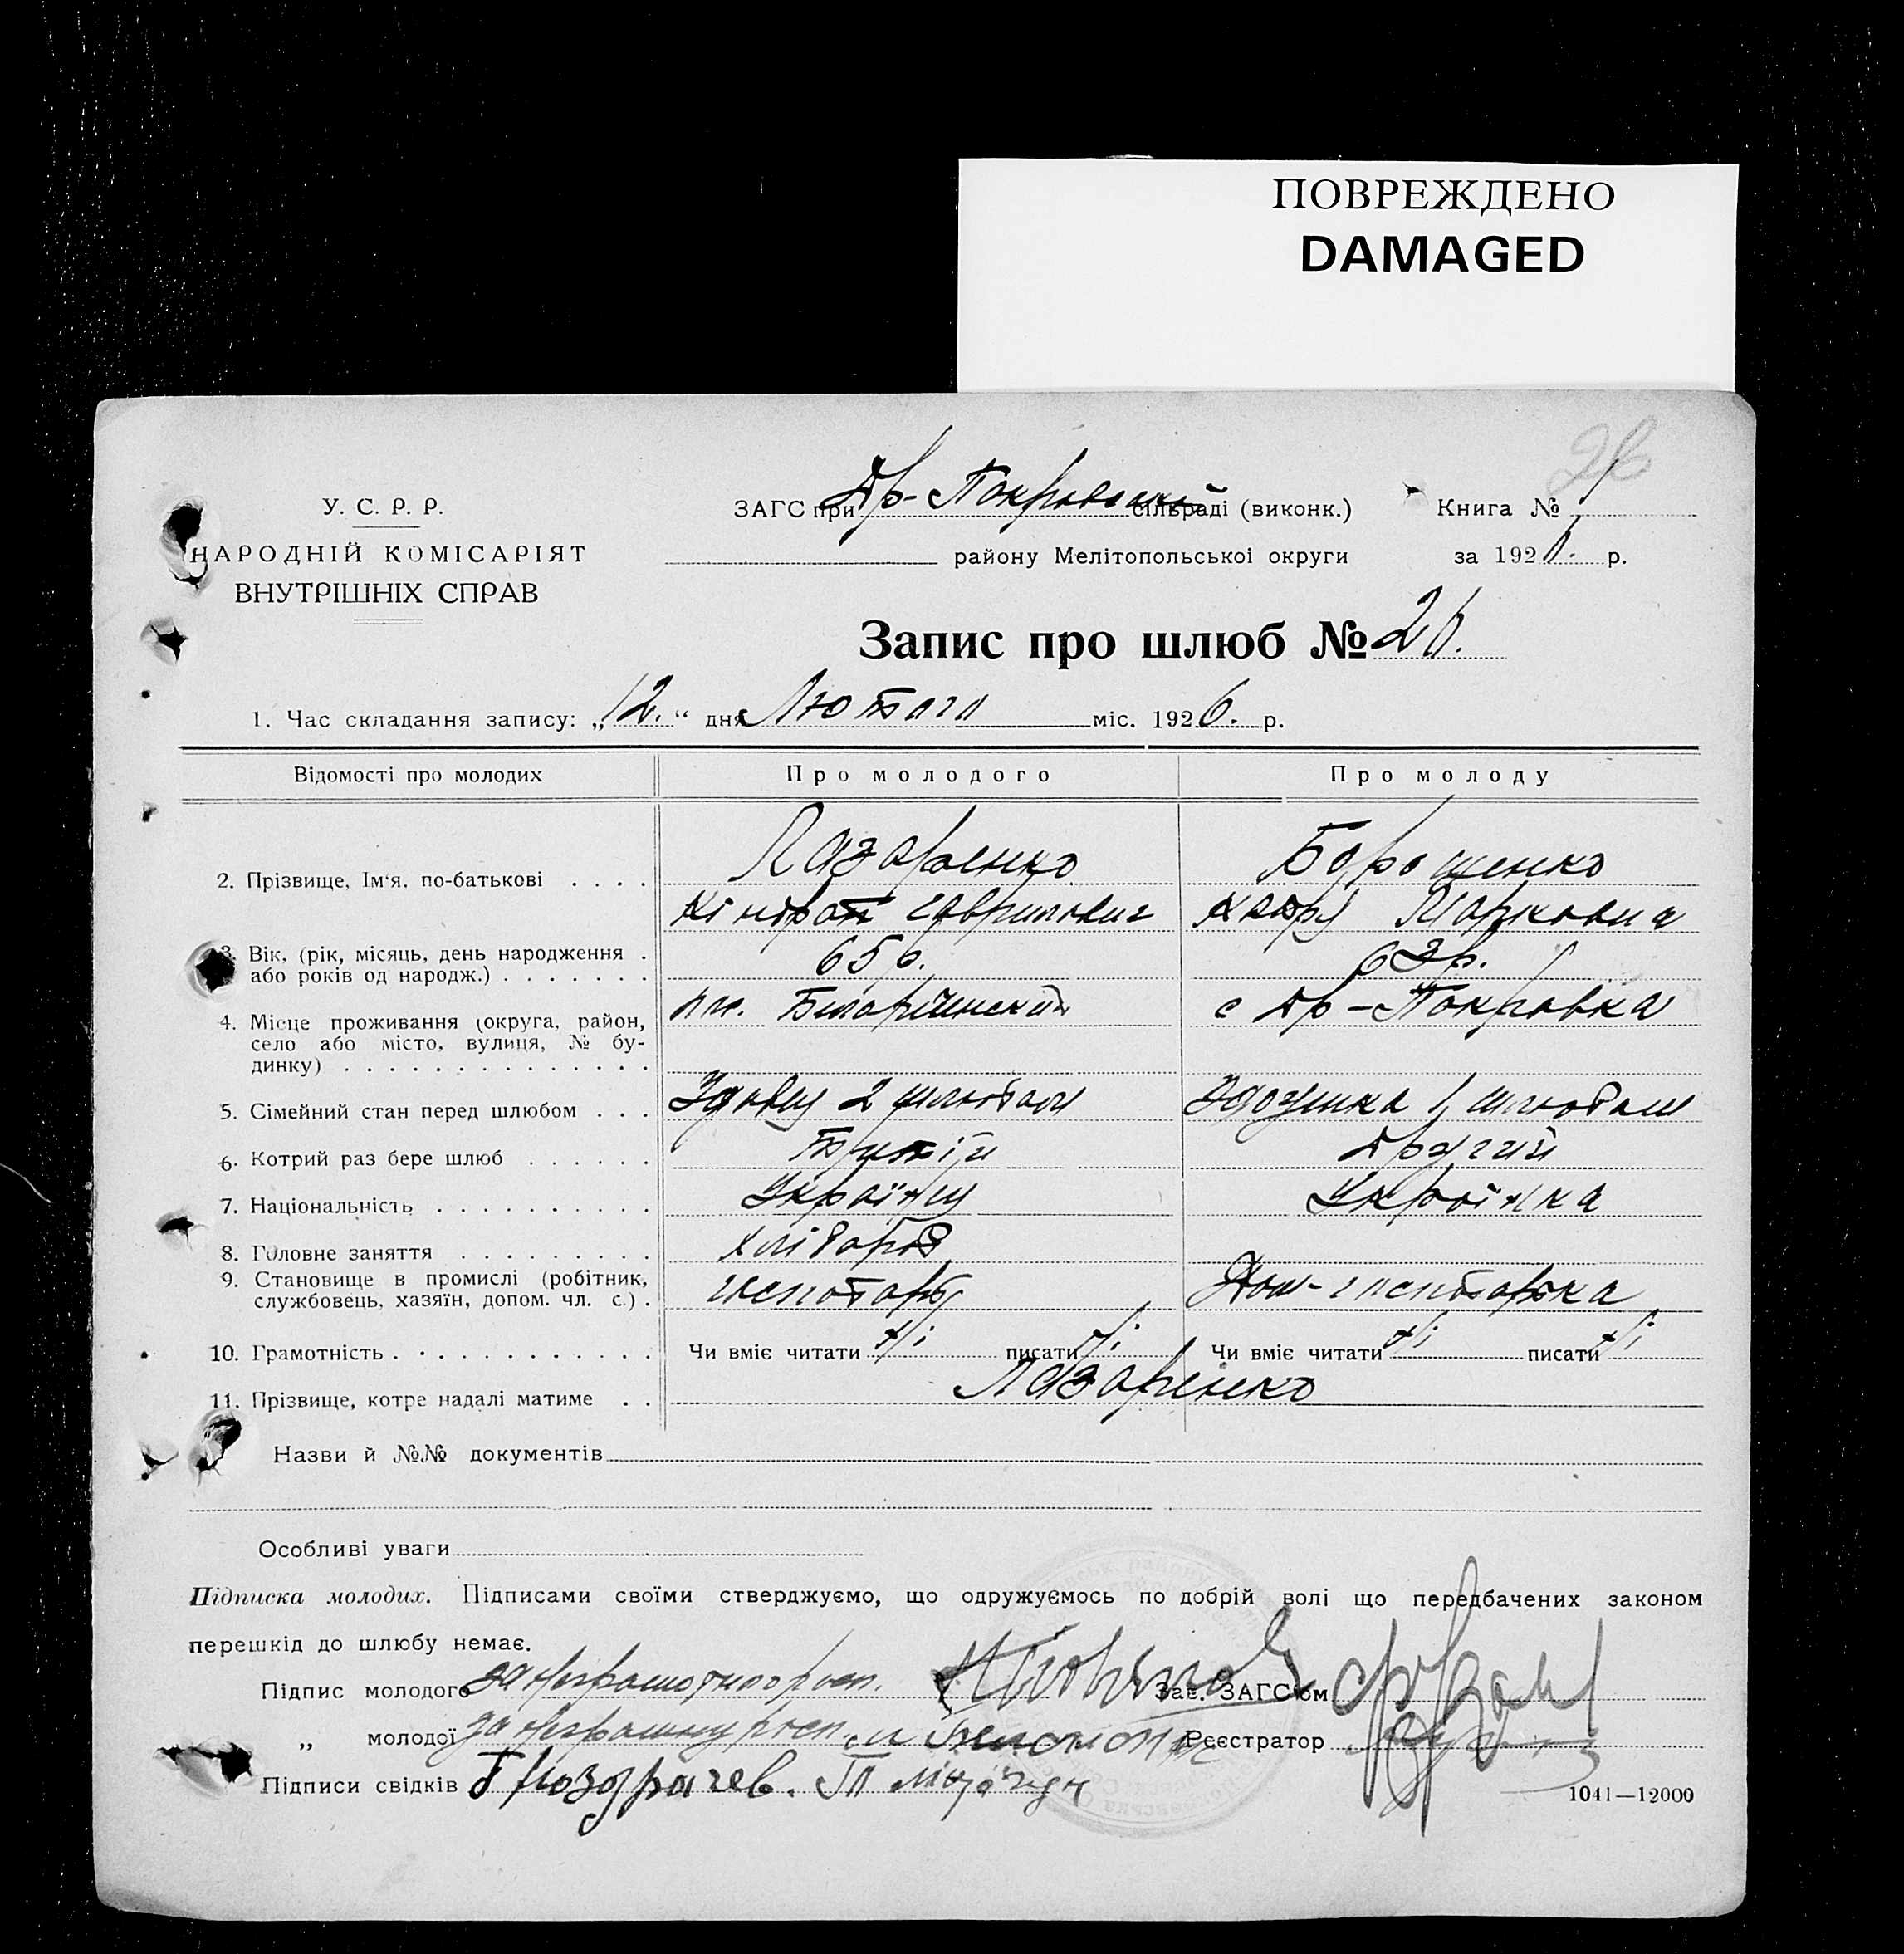 ПОВРЕЖДЕНО
DAMAGED
26
У. С. Р. Р.
НАРОДНІЙ КОМІСАРІЯТ
ВНУТРІШНІХ СПРАВ
ЗАГС при Др-Покровській сільраді (виконк.)
району Мелітопольської округи
Книга № 1
за 1926. р.
Запис про шлюб № 26.
1. Час складання запису: „12.“ дня Лютого міс. 1926. р.
Відомості про молодих Про молодого Про молоду
2. Прізвище, Ім'я, по-батькові . . . . Лазаренко Борошенко
Кіндрат Гаврилович Марковна
3. Вік, (рік, місяць, день народження . 65 р. 63 р.
або років од народж.) . . . . . . .
4. Місце проживання (округа, район, с Др-Покровка
село або місто, вулиця, № бу-
динку) . . . . . . . . . . . . . .
5. Сімейний стан перед шлюбом . . . Здовец 2 шлюбом 1 шлюбом
6. Котрий раз бере шлюб . . . . . . Третій Другий
7. Національність . . . . . . . . . . Українец Українка
8. Головне заняття . . . . . . . . . Хлібороб
9. Становище в промислі (робітник,
службовець, хазяїн, допом. чл. с.) .
10. Грамотність . . . . . . . . . . . . Чи вміє читати ні писати ні Чи вміє читати ні писати ні
11. Прізвище, котре надалі матиме . . Лазаренко
Назви й №№ документів
Особливі уваги
Підписка молодих. Підписами своїми стверджуємо, що одружуємось по добрій волі що передбачених законом
перешкід до шлюбу немає.
Підпис молодого за неграмотного росп. Зав. ЗАГС'ом
„ молодої за неграмотну росп. Реєстратор
Підписи свідків
1041—12000